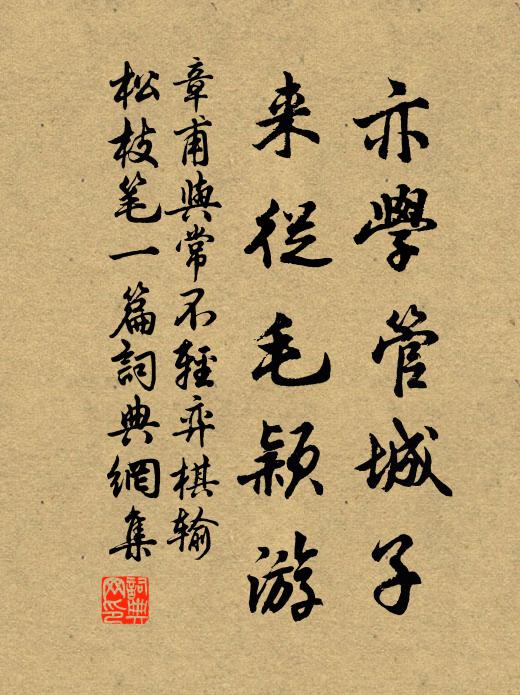 亦學管城子
来從毛穎游
章甫與常不輕弈棋輸
松枝笔一篇詞典網集
詞典网印